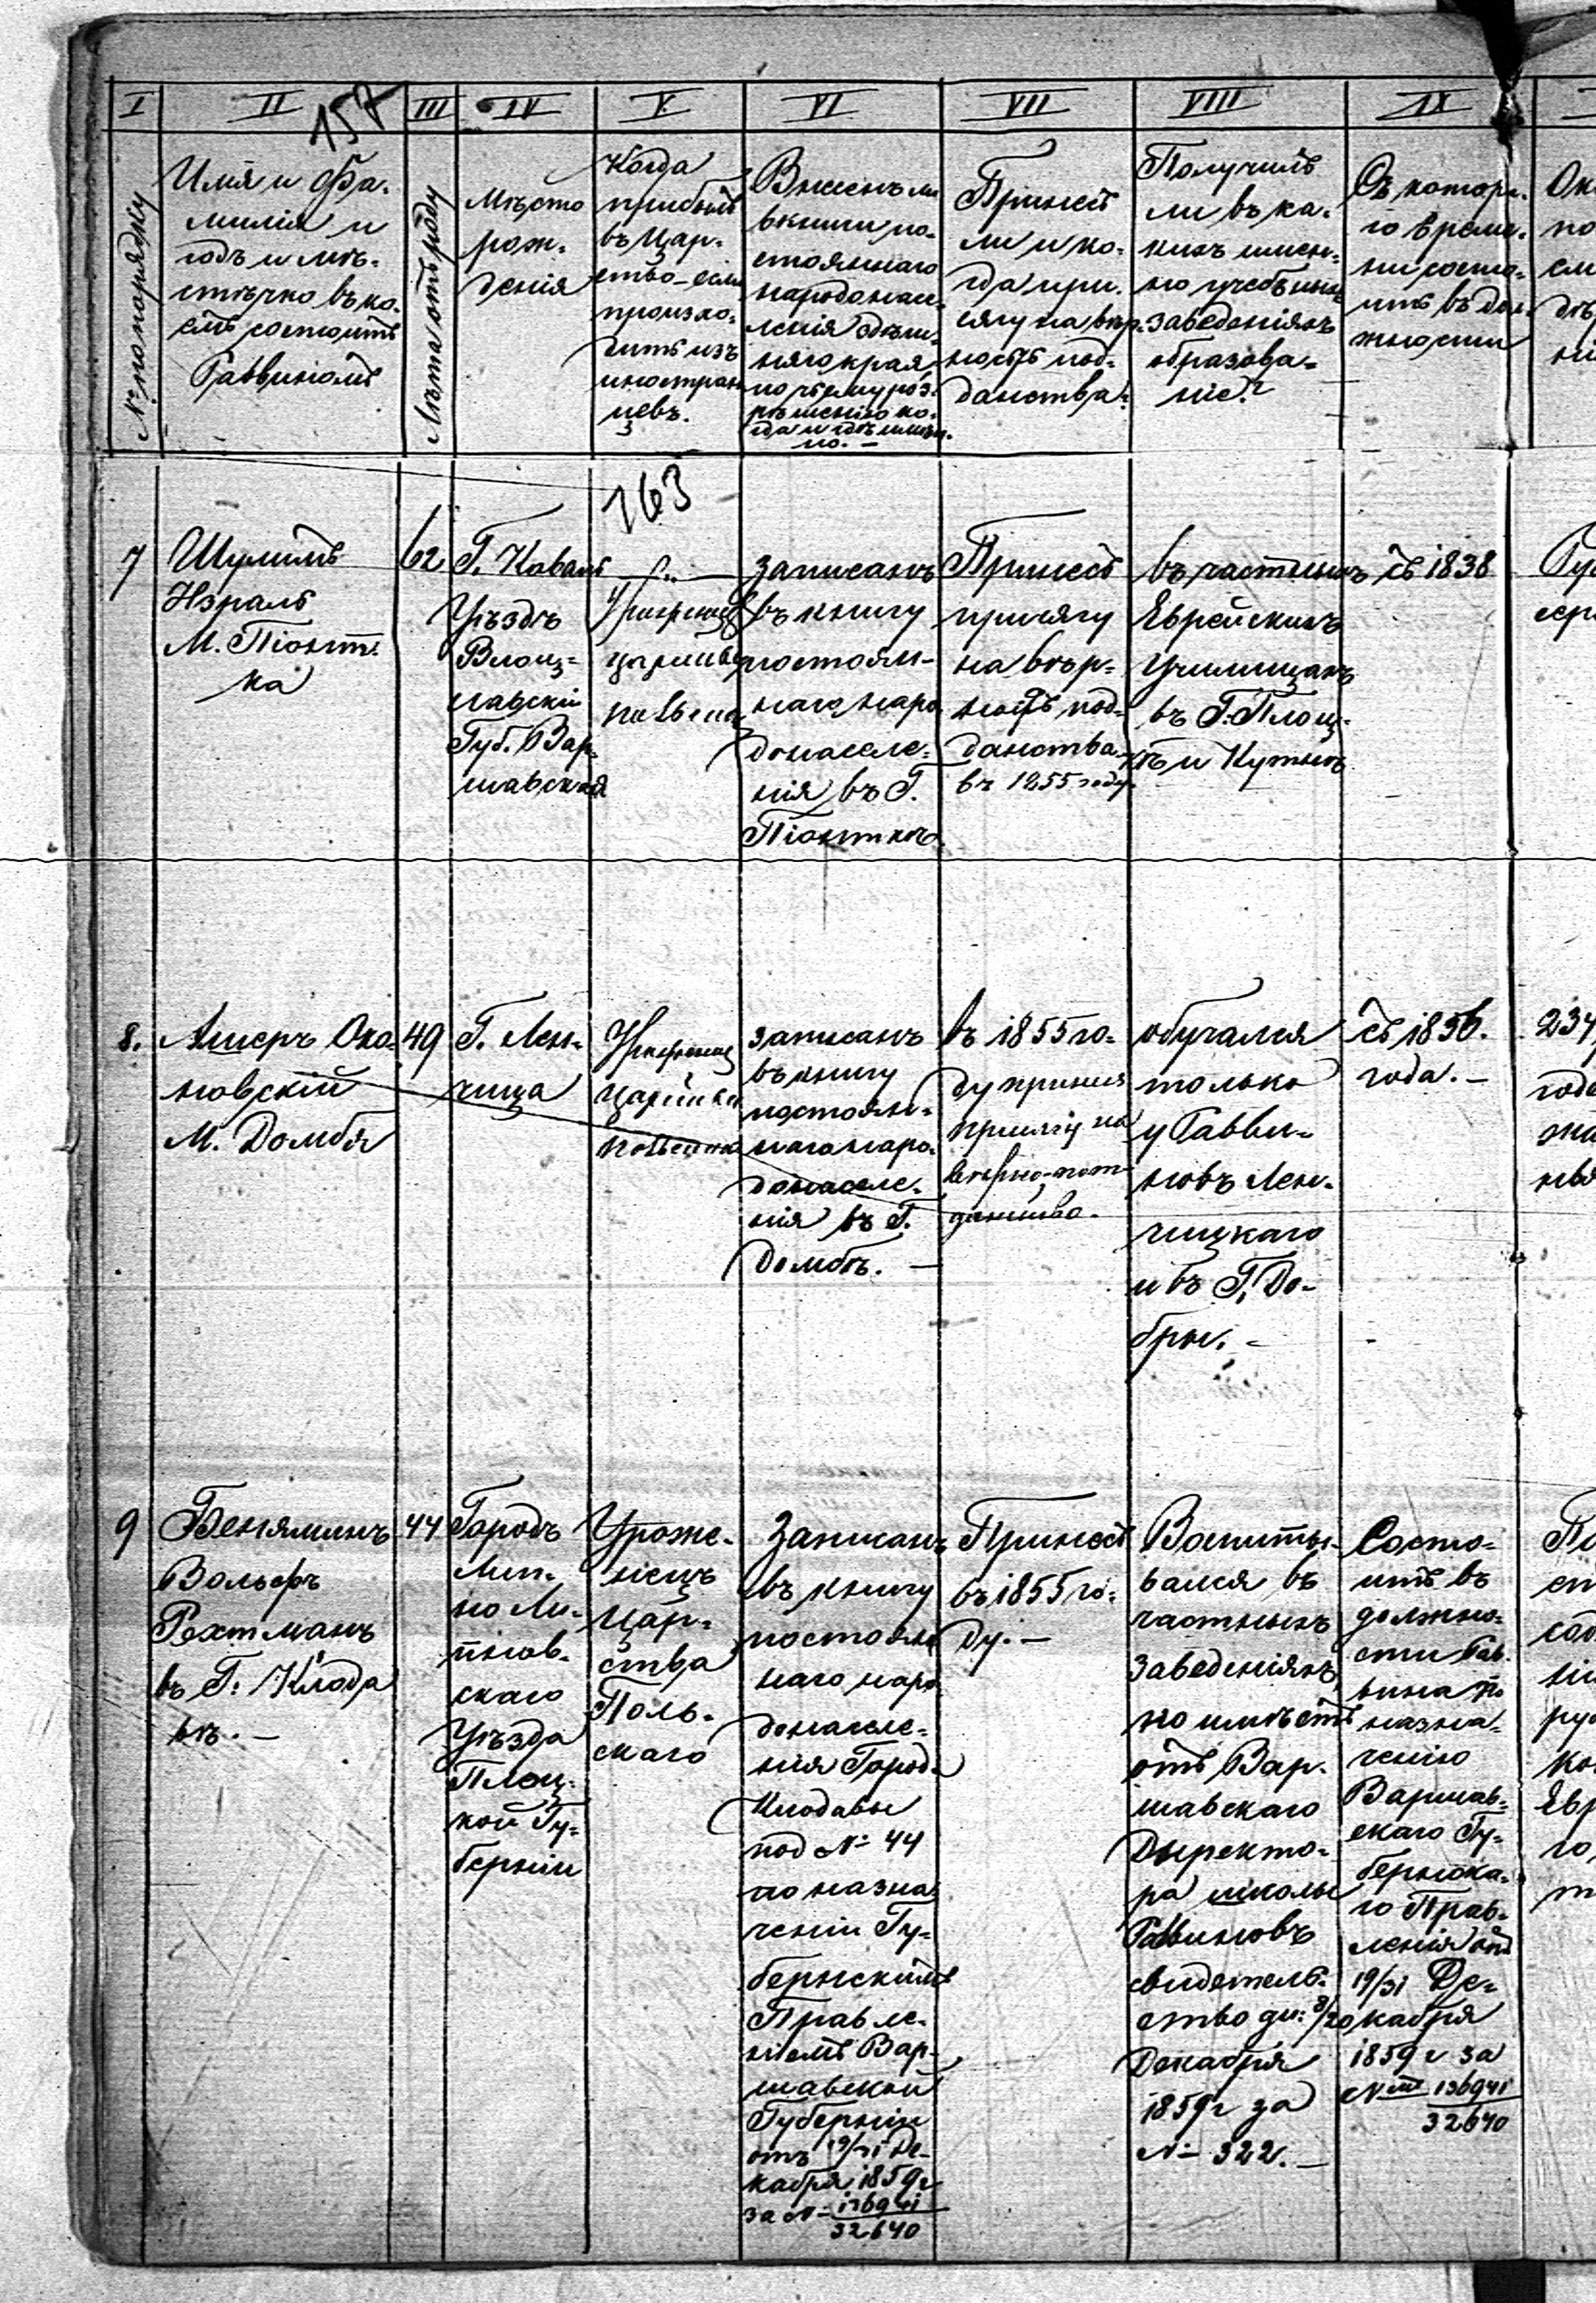 I
II
157
III
IV
V.
VI
VII
VIII
IX
№ по порядку
Имя и Фа-
милія и
годъ и мѣ-
стечко въ ко-
емъ состоитъ
Раввиномъ
Лѣта отъ роду
Мѣсто
рож-
денія
Когда
прибылъ
въ Цар-
ство – если
происхо-
дитъ изъ
иностран
цевъ.
Внесенъ ли
въ книги по-
стояннаго
народонасе-
ленія здѣш-
няго края
по чьему раз-
рѣшенію ко-
гда и гдѣ имен-
но. –
Принесъ
ли и ко-
гда при-
сягу на вѣр-
ность под-
данства?
Получилъ
ли въ ка-
кихъ имен-
но учебныхъ
заведеніяхъ
образова-
ніе?
Съ котора-
го време-
ни состо-
итъ въ дол-
жности
163
7
Шулимъ
Израль
М. Піонт-
ка
62
Г. Коваль
Уѣздъ
Влоц-
лавскій
Губ. Вар-
шавская
записанъ
въ книгу
постоян-
наго наро
донаселе-
нія въ Г.
Піонткѣ.
Принесъ
присягу
на вѣр-
ность под-
данства
въ 1855 году.
въ частныхъ
Еврейскихъ
Училищахъ
въ Г. Плоц-
кѣ и Кутнѣ
съ 1838
8.
Ашеръ Око-
новскій
М. Домбя
49
Г. Лен-
чица
записанъ
въ книгу
постоян-
наго наро-
донаселе-
нія въ Г.
Домбѣ. –
въ 1855 го-
ду принял
присягу на
вѣрно-пот
данство.
обучался
только
у Равви-
новъ Лен-
чицкаго
и въ Г. До-
бры. –
съ 1856.
года. –
234
9
Беняминъ
Вольфъ
Рехтманъ
въ Г. Клода
вѣ. –
44
Городъ
Лип-
но Ли-
пнов-
скаго
Уѣзда
Плоц-
кой Гу-
берніи
Уроже-
нецъ
Цар-
ства
Поль-
скаго
Записанъ
въ книгу
постоян
наго наро
донаселе-
нія Города
Клодавы
под № 44
по назна-
ченіи Гу-
бернскимъ
Правле-
ніемъ Вар-
шавской
Губерніи
отъ 19/31 Де-
кабря 1859 г
за № 136941
32640
Принесъ
въ 1855 го-
ду. –
Воспиты-
вался въ
частныхъ
заведеніяхъ
но имѣетъ
отъ Вар-
шавскаго
Директо-
ра школы
Раввиновъ
свидетель-
ство дн: 8/20
Декабря
1859 г за
№ 322. –
Состо-
итъ въ
должно-
сти Рав-
вина по
назна-
ченію
Варшав-
скаго Гу-
бернска-
го Прав-
ленія отъ
19/31 Де-
кабря
1859 г за
№ 136941
32640